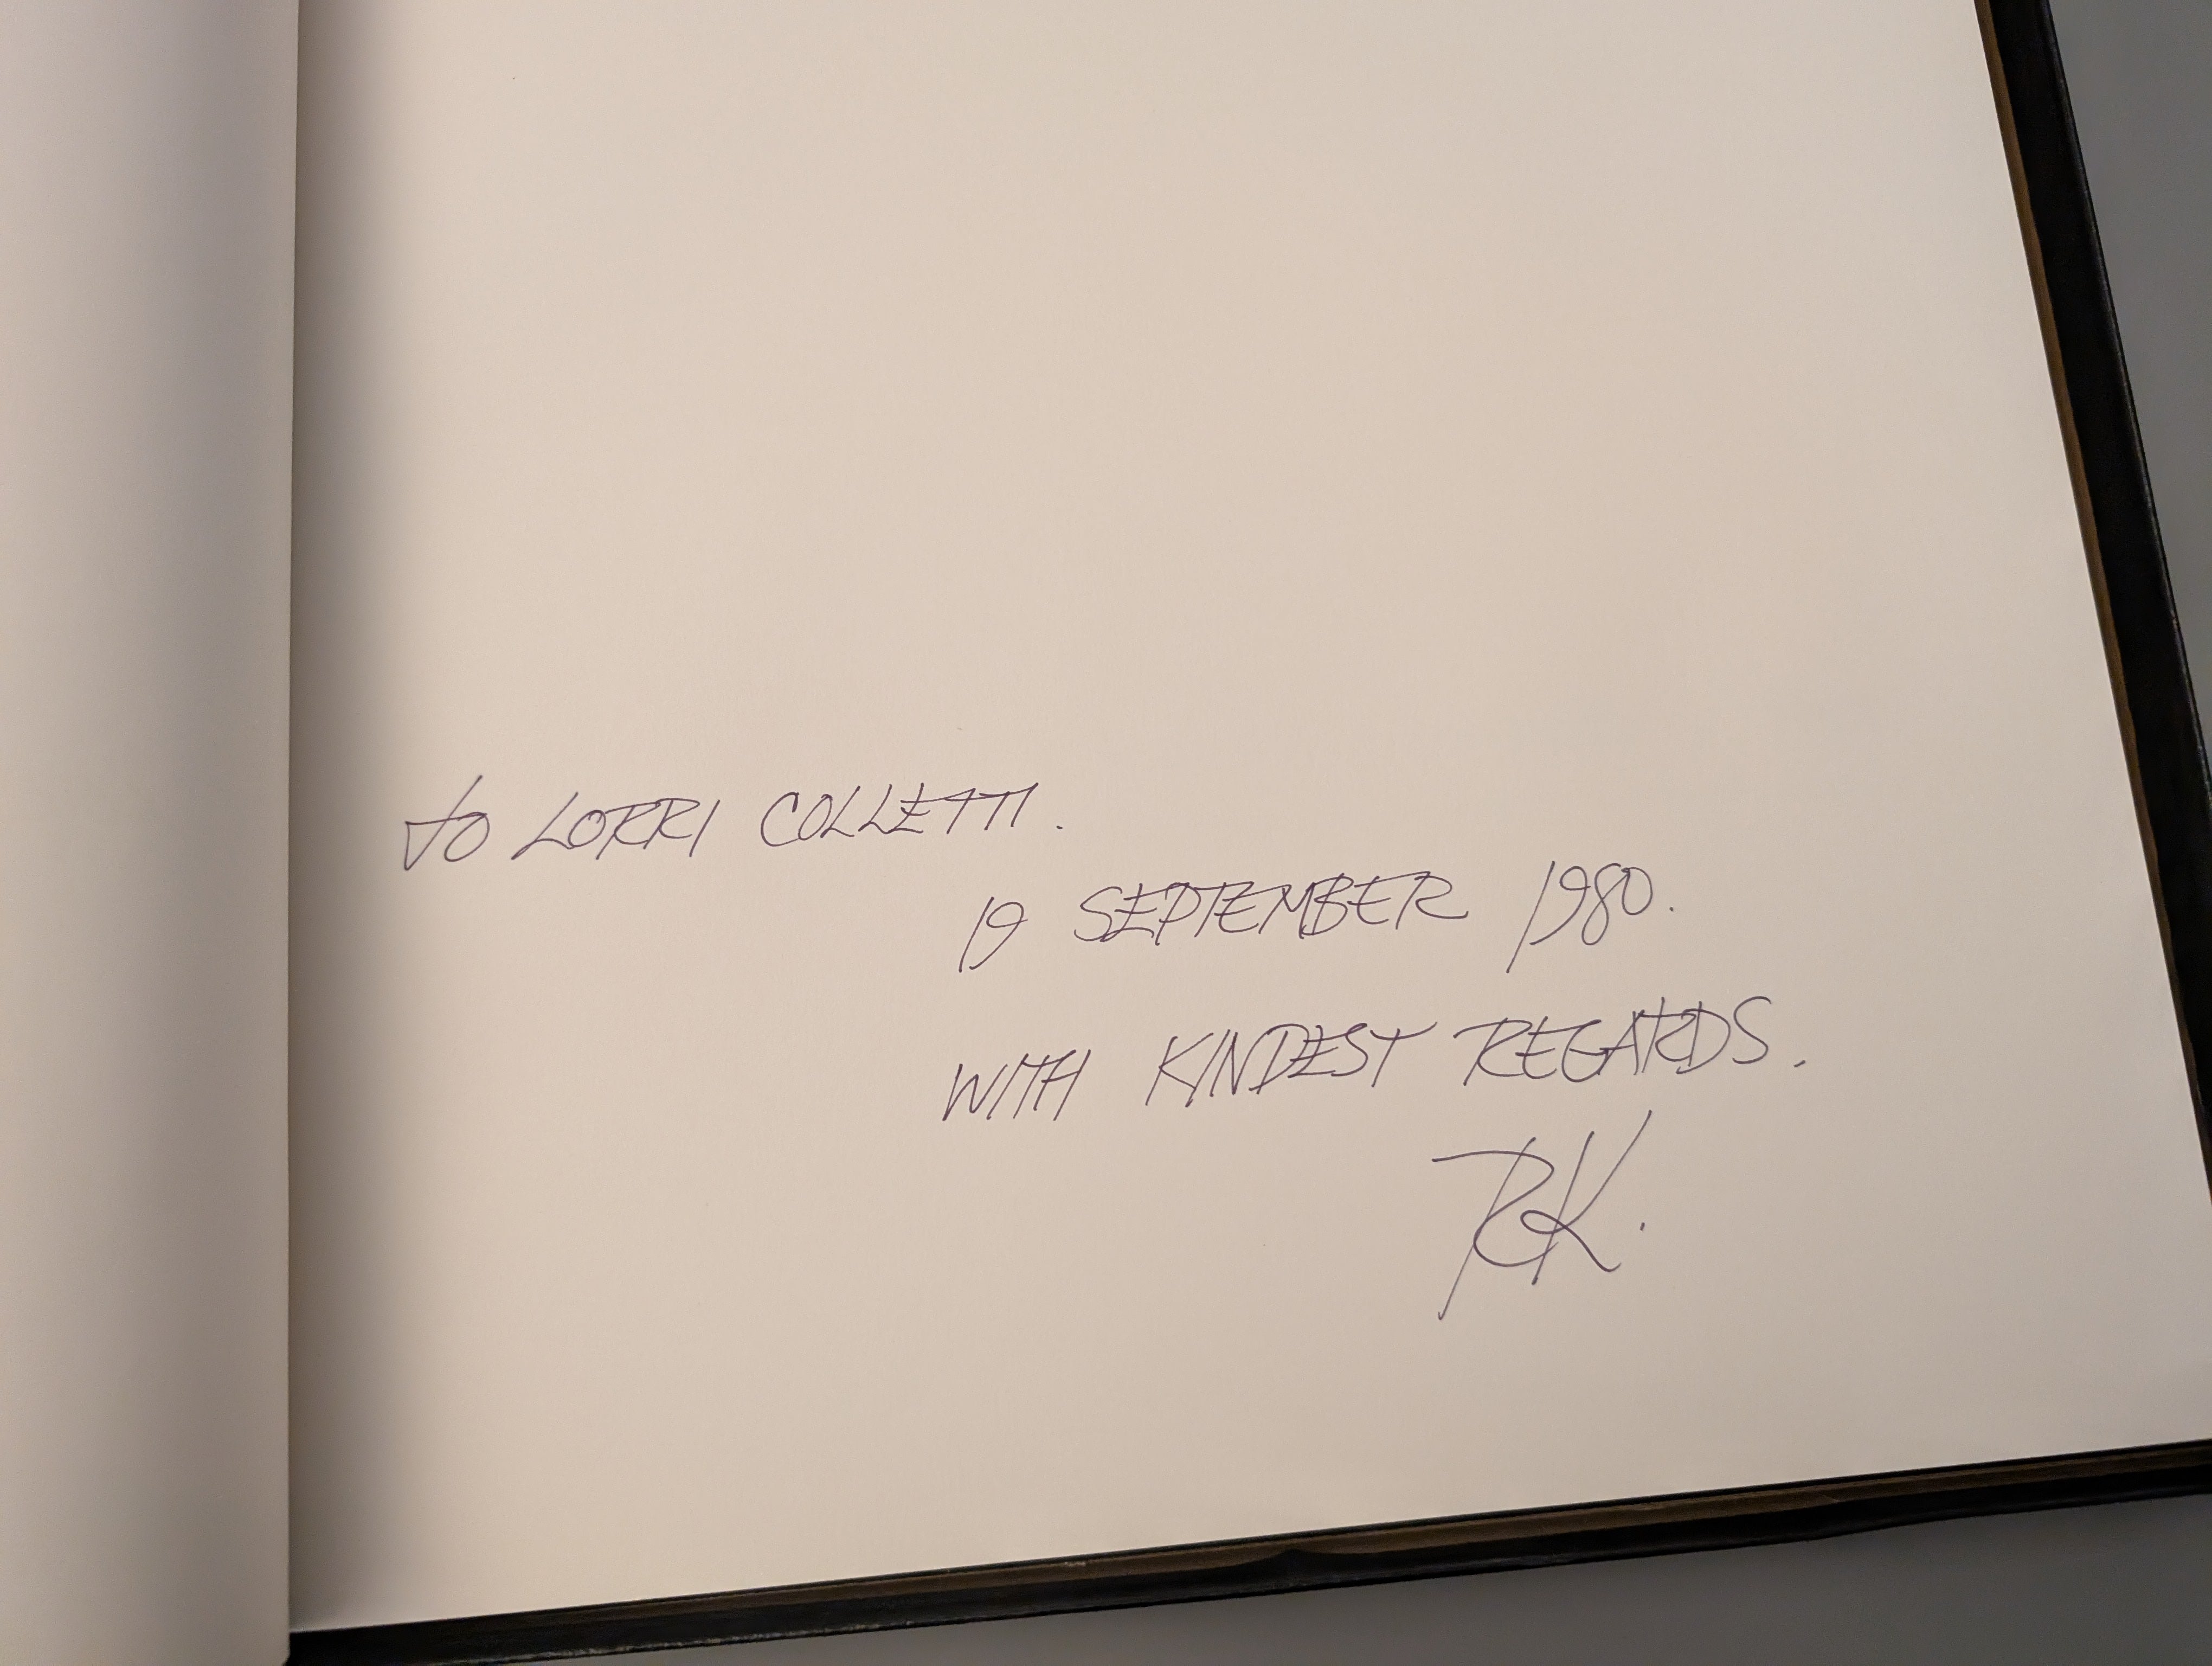 to LORRI COLLETTI.
19 SEPTEMBER 1980.
WITH KINDEST REGARDS.
RK.